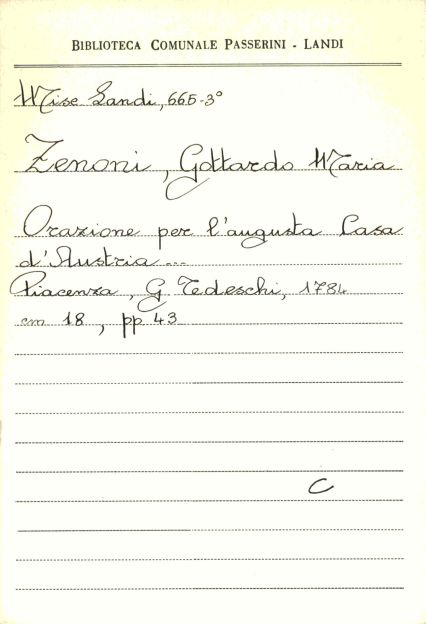 BIBLIOTECA COMUNALE PASSERINI - LANDI
Misc Landi, 665-3°
Zenoni, Gottardo Maria
Orazione per l'augusta Casa
d'Austria ...
Piacenza, G Tedeschi, 1784
cm 18, pp 43
C